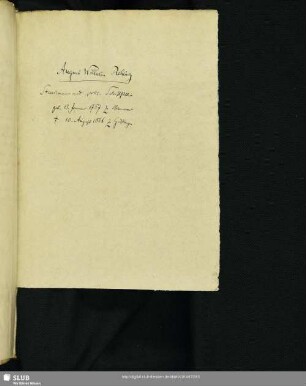 August Wilhelm Rehberg
Staatsmann und polit. Schriftsteller
geb. 13. Januar 1757 zu Hannover
† 10. August 1836 zu Göttingen
SLUB
Wir führen Wissen.